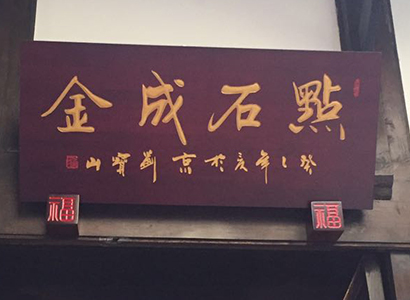 點石成金
癸巳年夏於京劉寶山
福
福